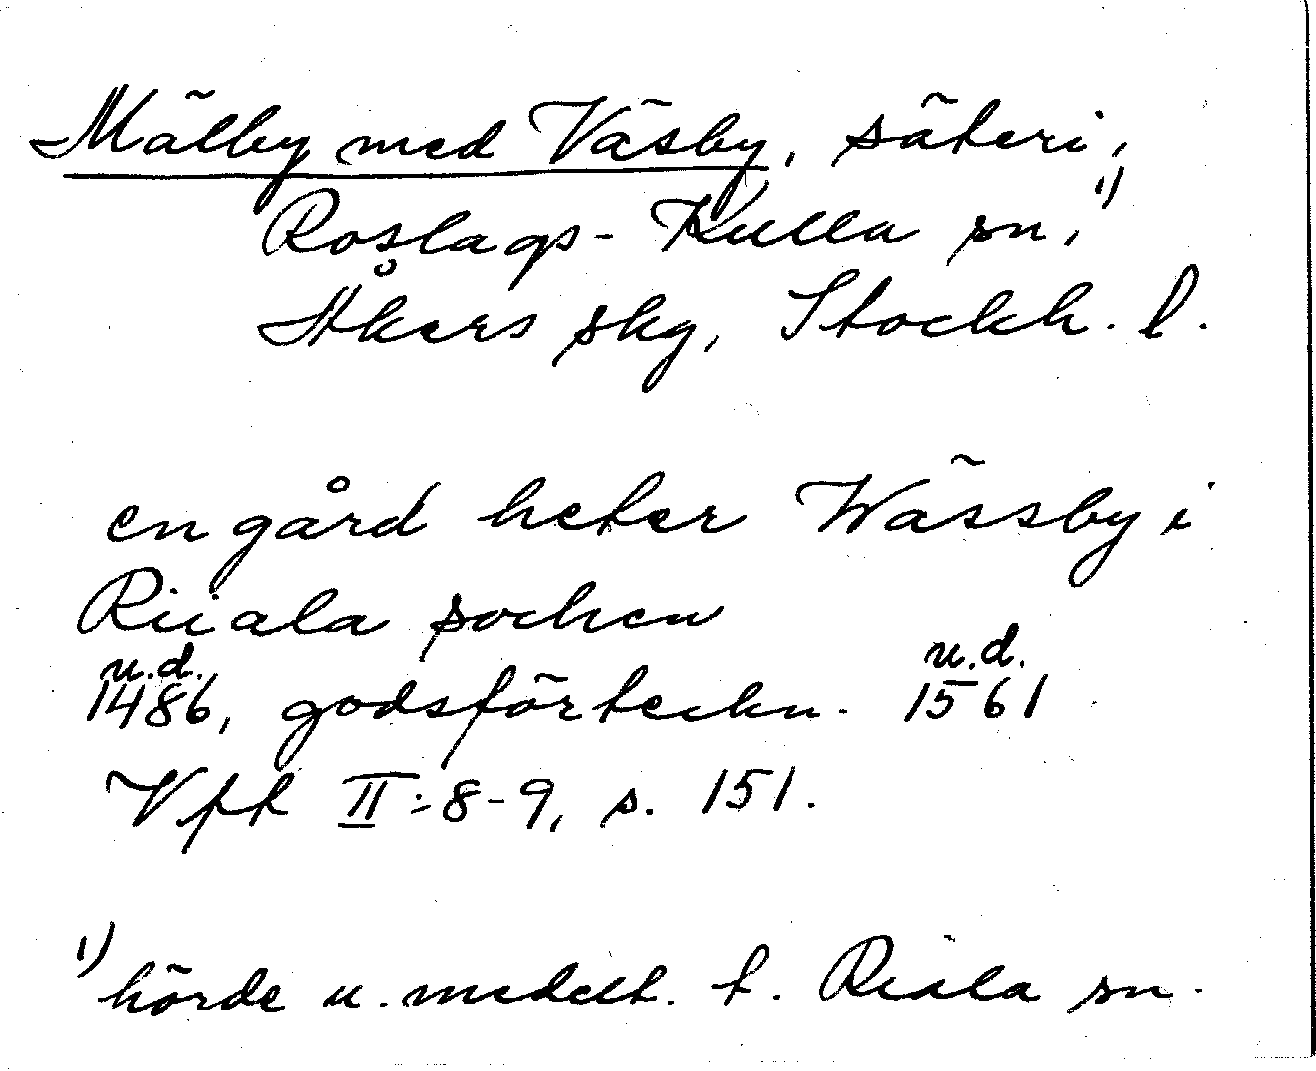 Mälby med Väsby, säteri,
Roslags-Kulla sn,¹⁾
Åkers skg, Stockh. l.
en gård heter Wässby i
Riiala sochen
u.d. u.d.
1486, godsförteckn. 1561
Vft II:8-9, s. 151.
¹⁾ hörde u. medelt. t. Riala sn.